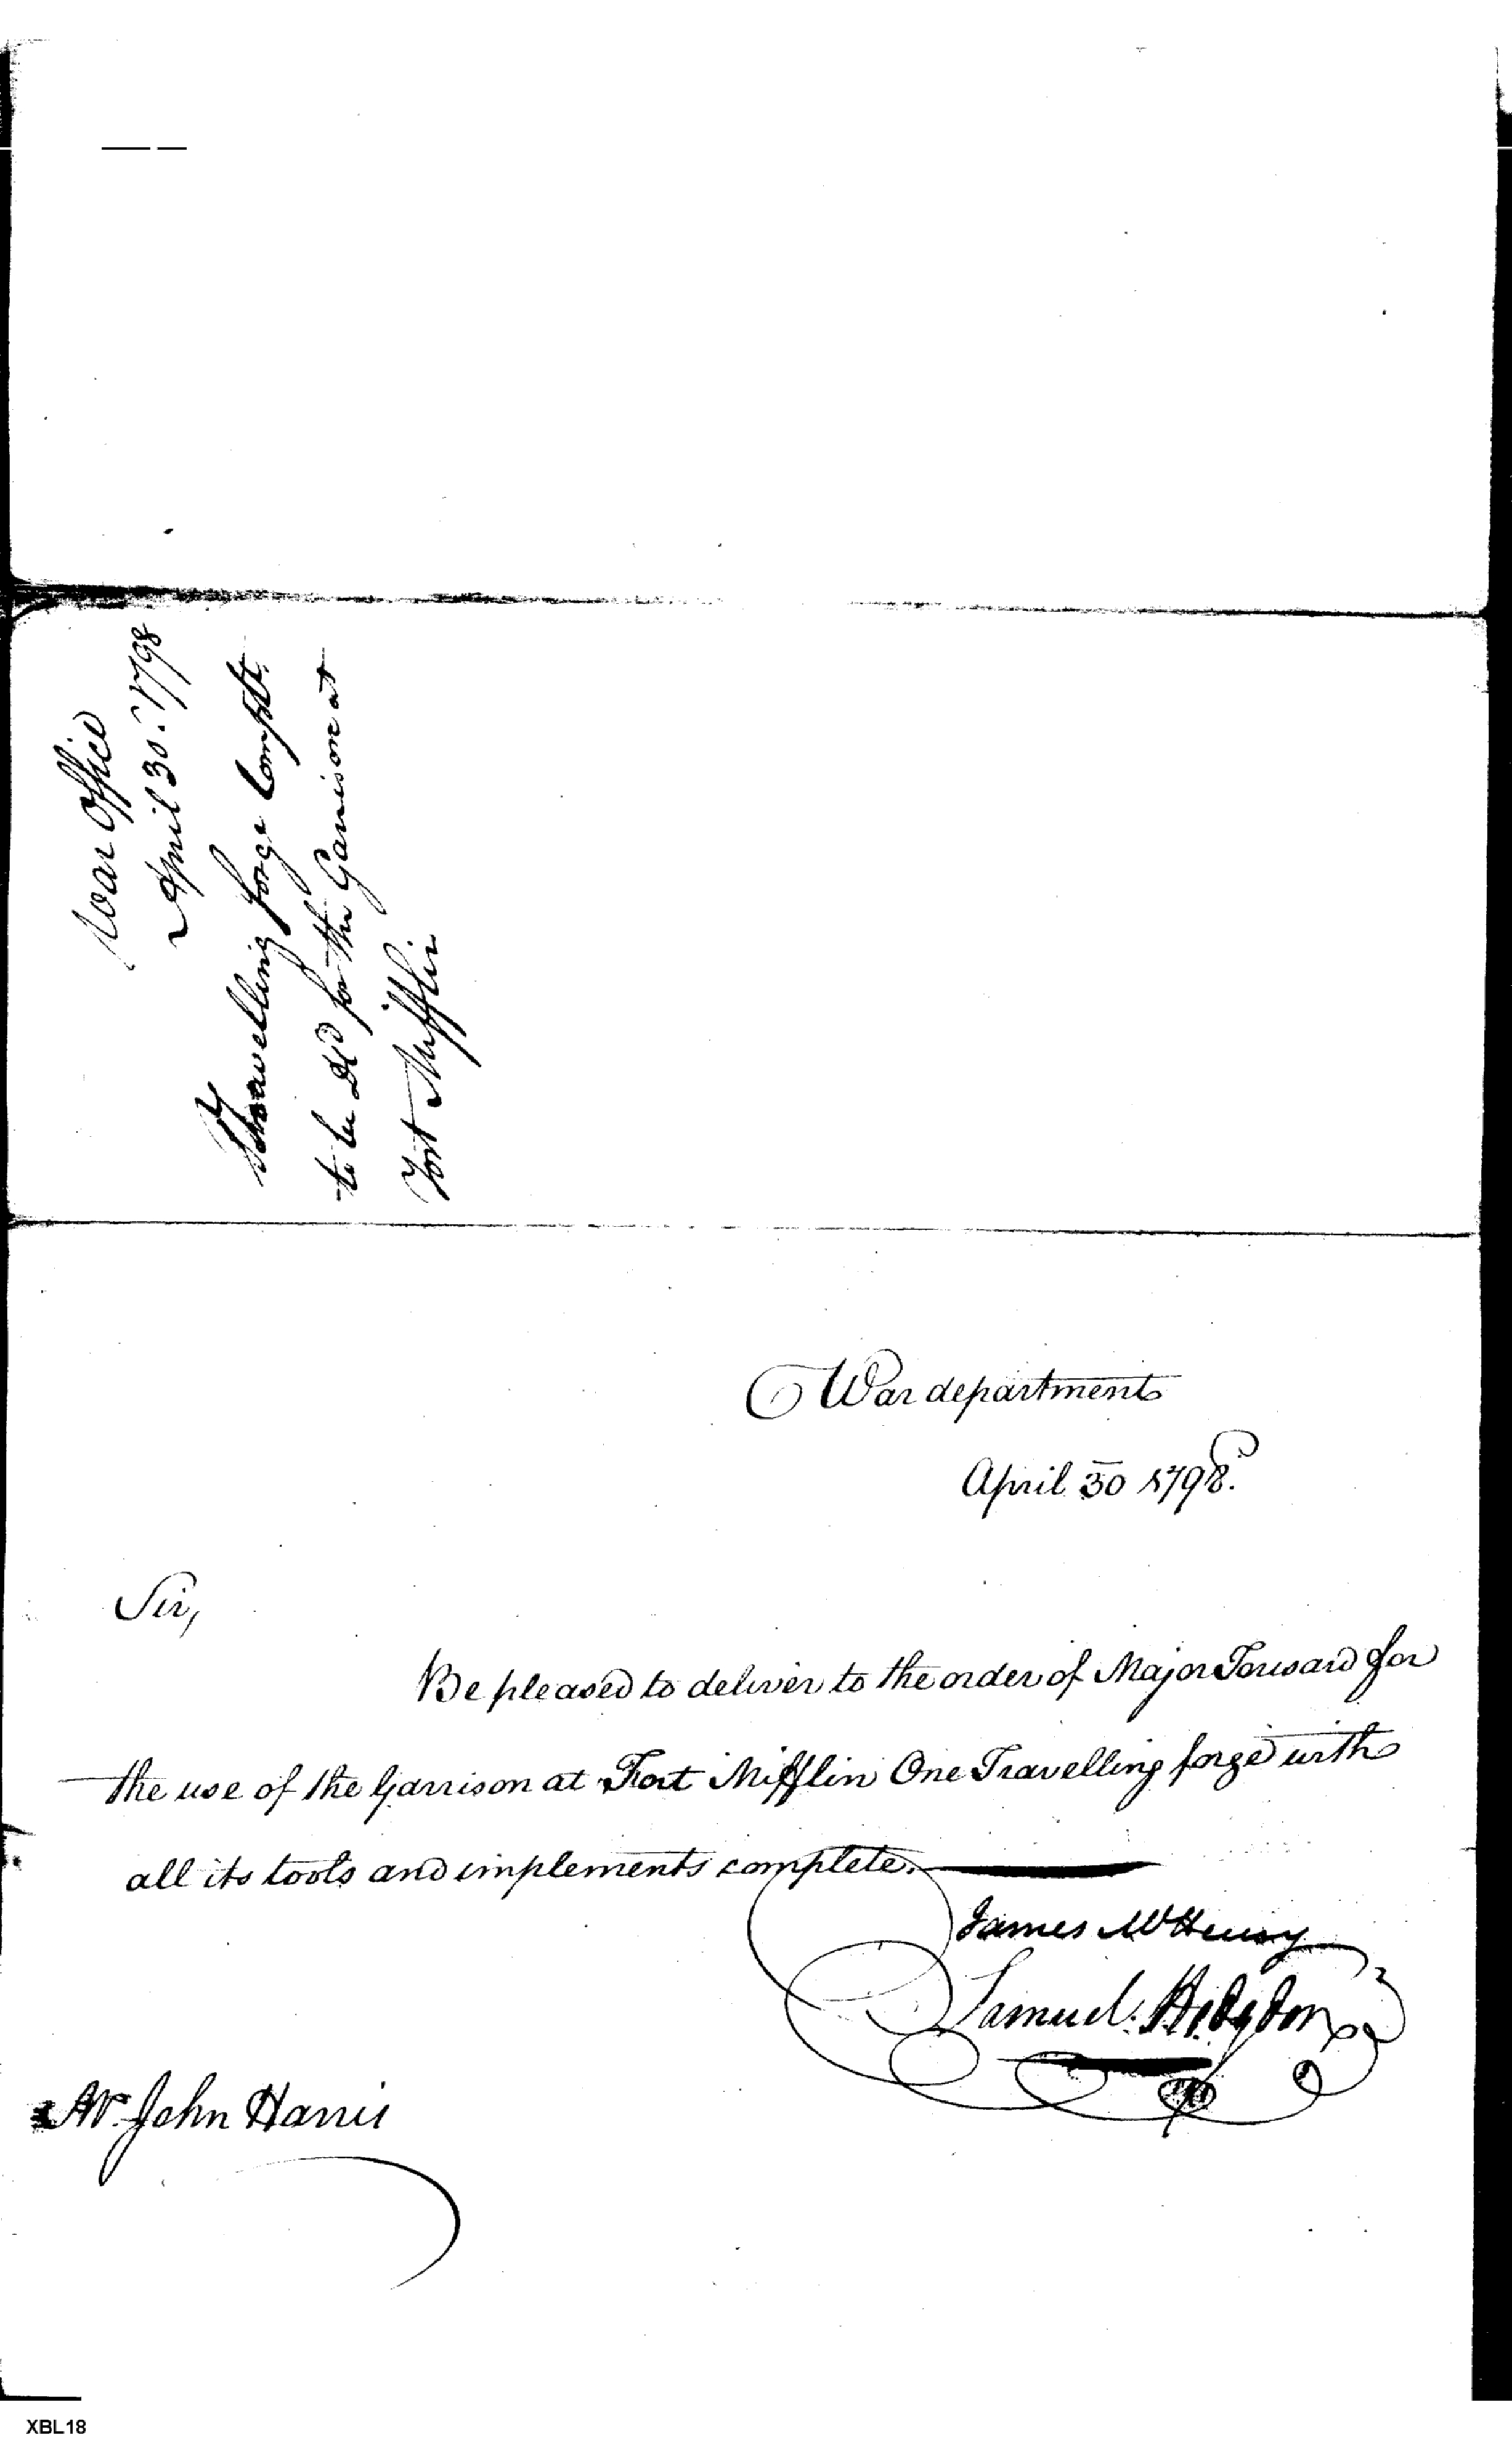 War Office
April 30. 1798
Travelling forge Complt.
to be Dld for the Garrison at
Fort Mifflin
War department
April 30 1798.
Sir,
Be pleased to deliver to the order of Major Toward for
the use of the Garrison at Fort Mifflin One Travelling forge with
all its tools and implements complete.
James McHenry
Samuel Hodgdon
Mr. John Harris
XBL18